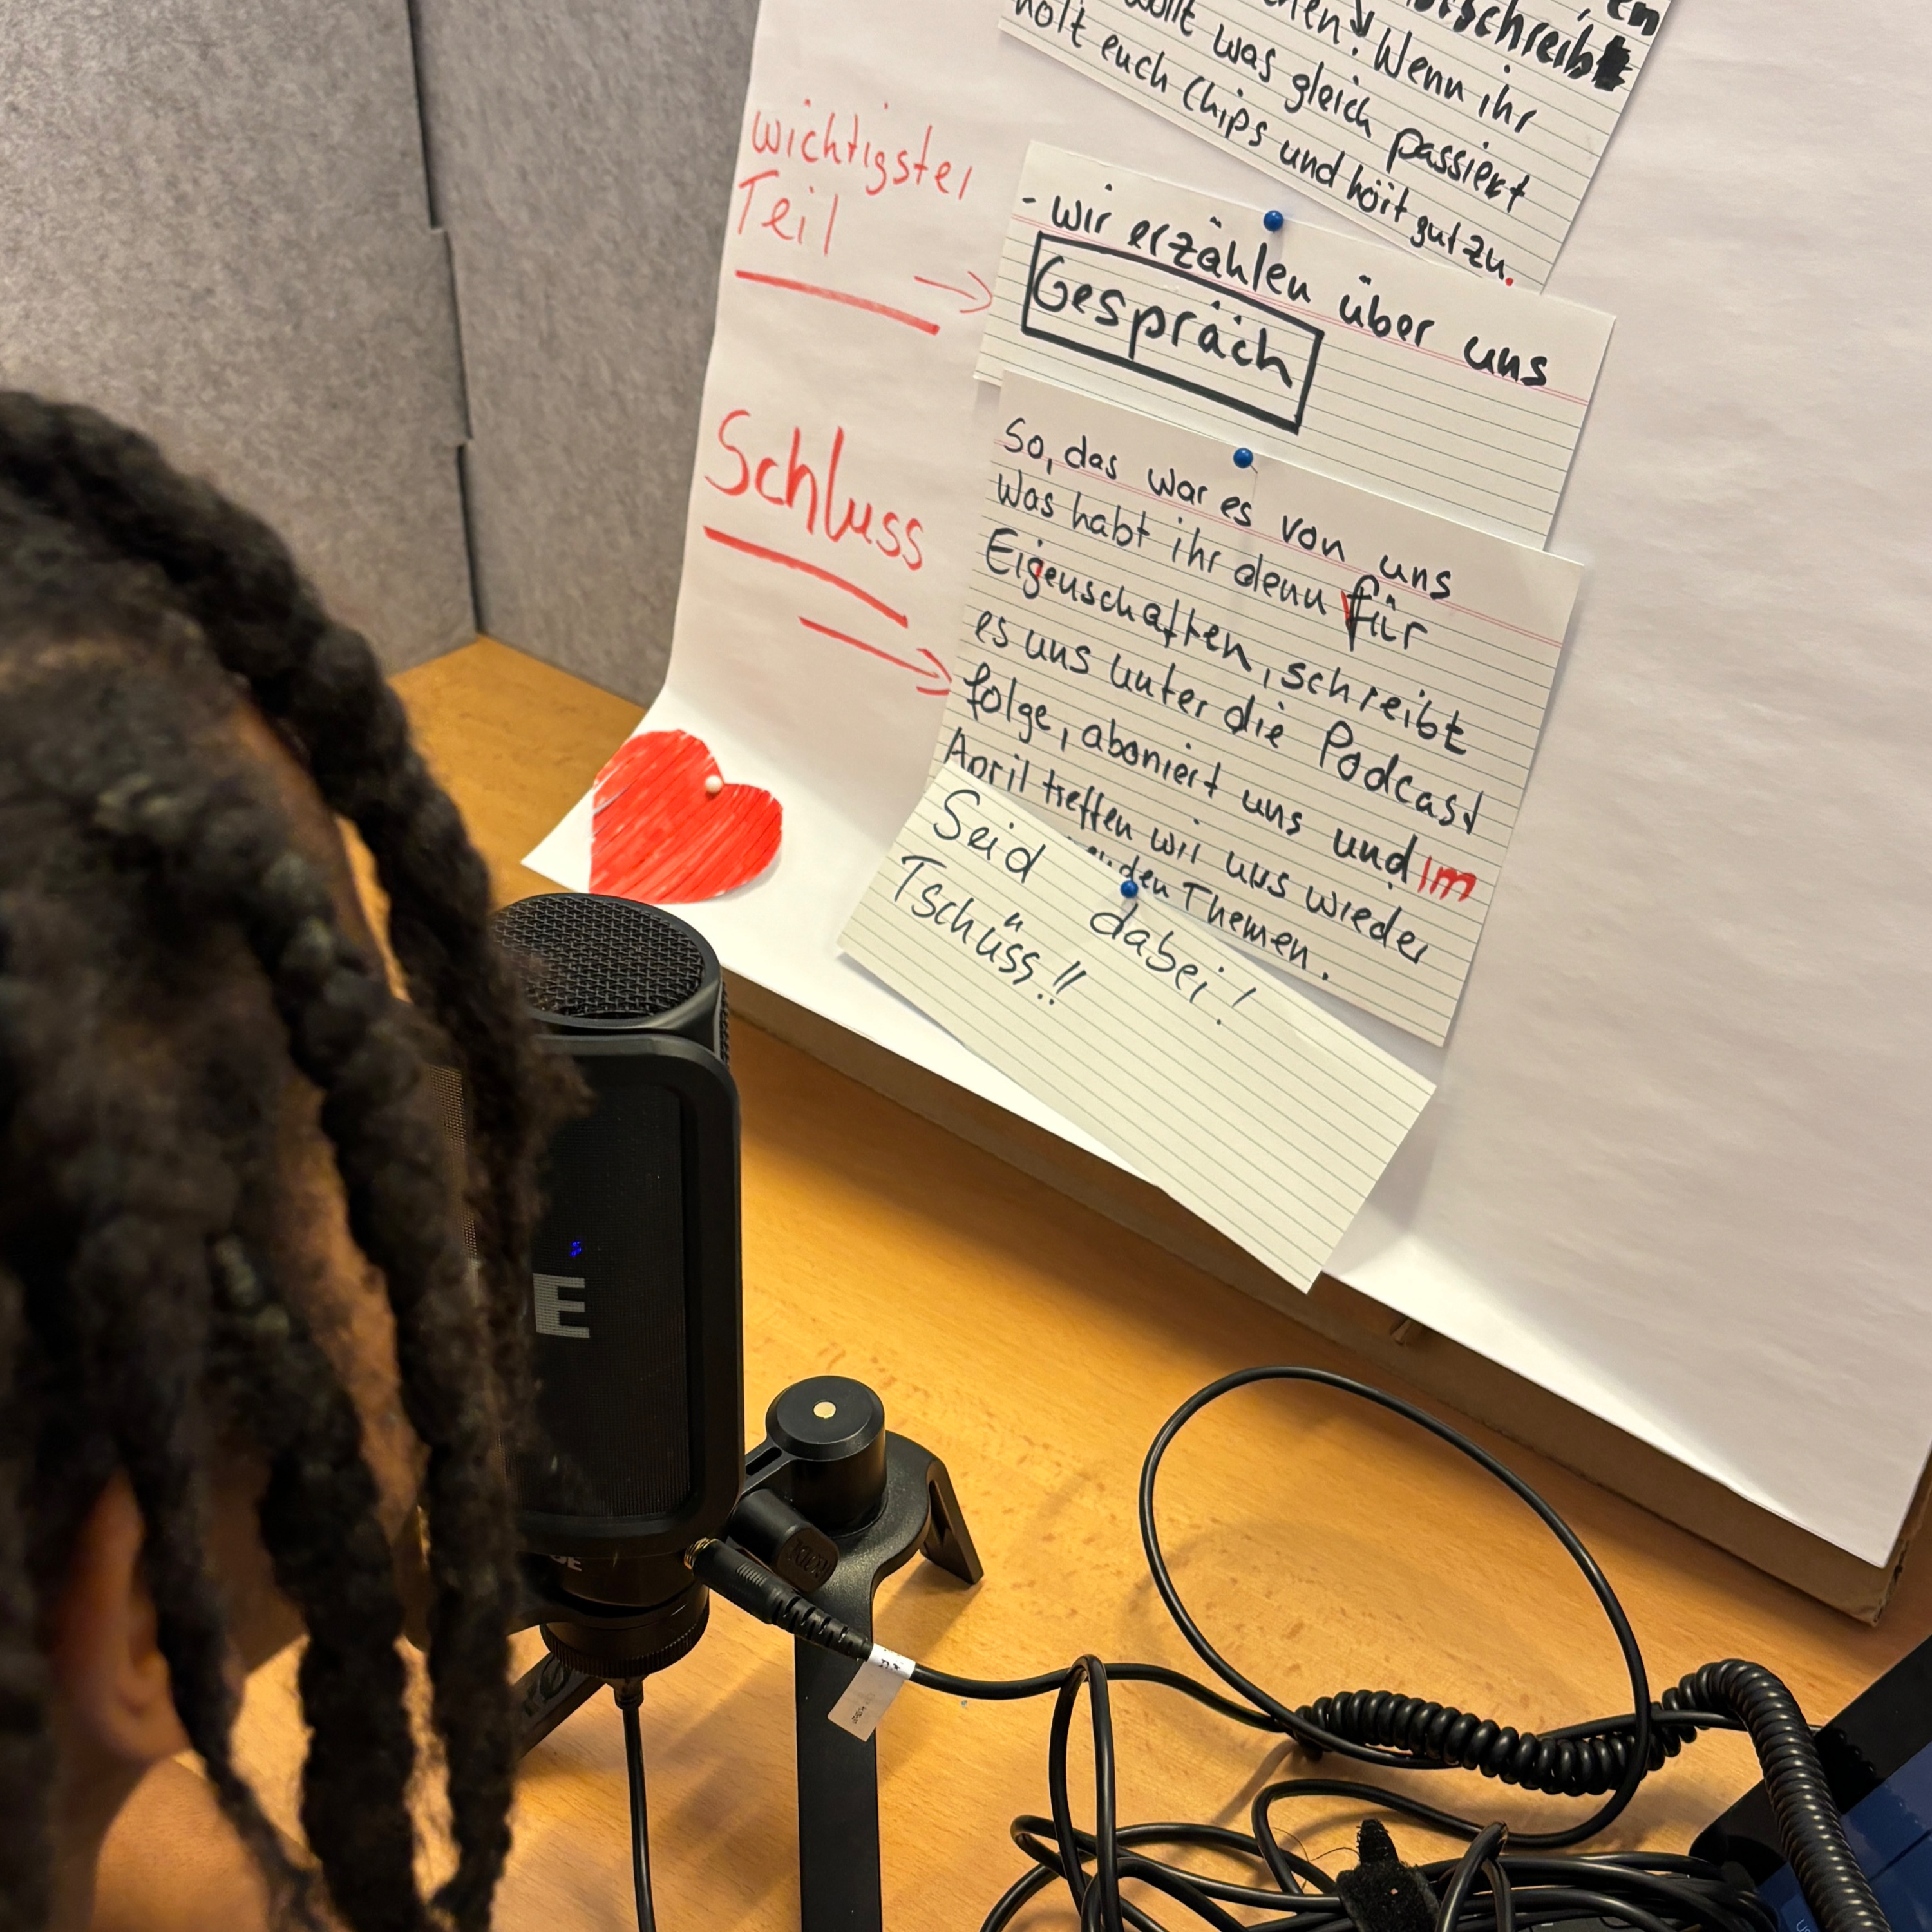 schreibt
Wenn ihr
wollt was gleich passiert
holt euch Chips und hört gut zu.
wichtigster
Teil
- wir erzählen über uns
Gespräch
Schluss
So, das war es von uns
Was habt ihr denn für
Eigenschaften, schreibt
es uns unter die Podcast
folge, aboniert uns und im
April treffen wir uns wieder
den Themen.
Seid dabei!
Tschüss!!
E